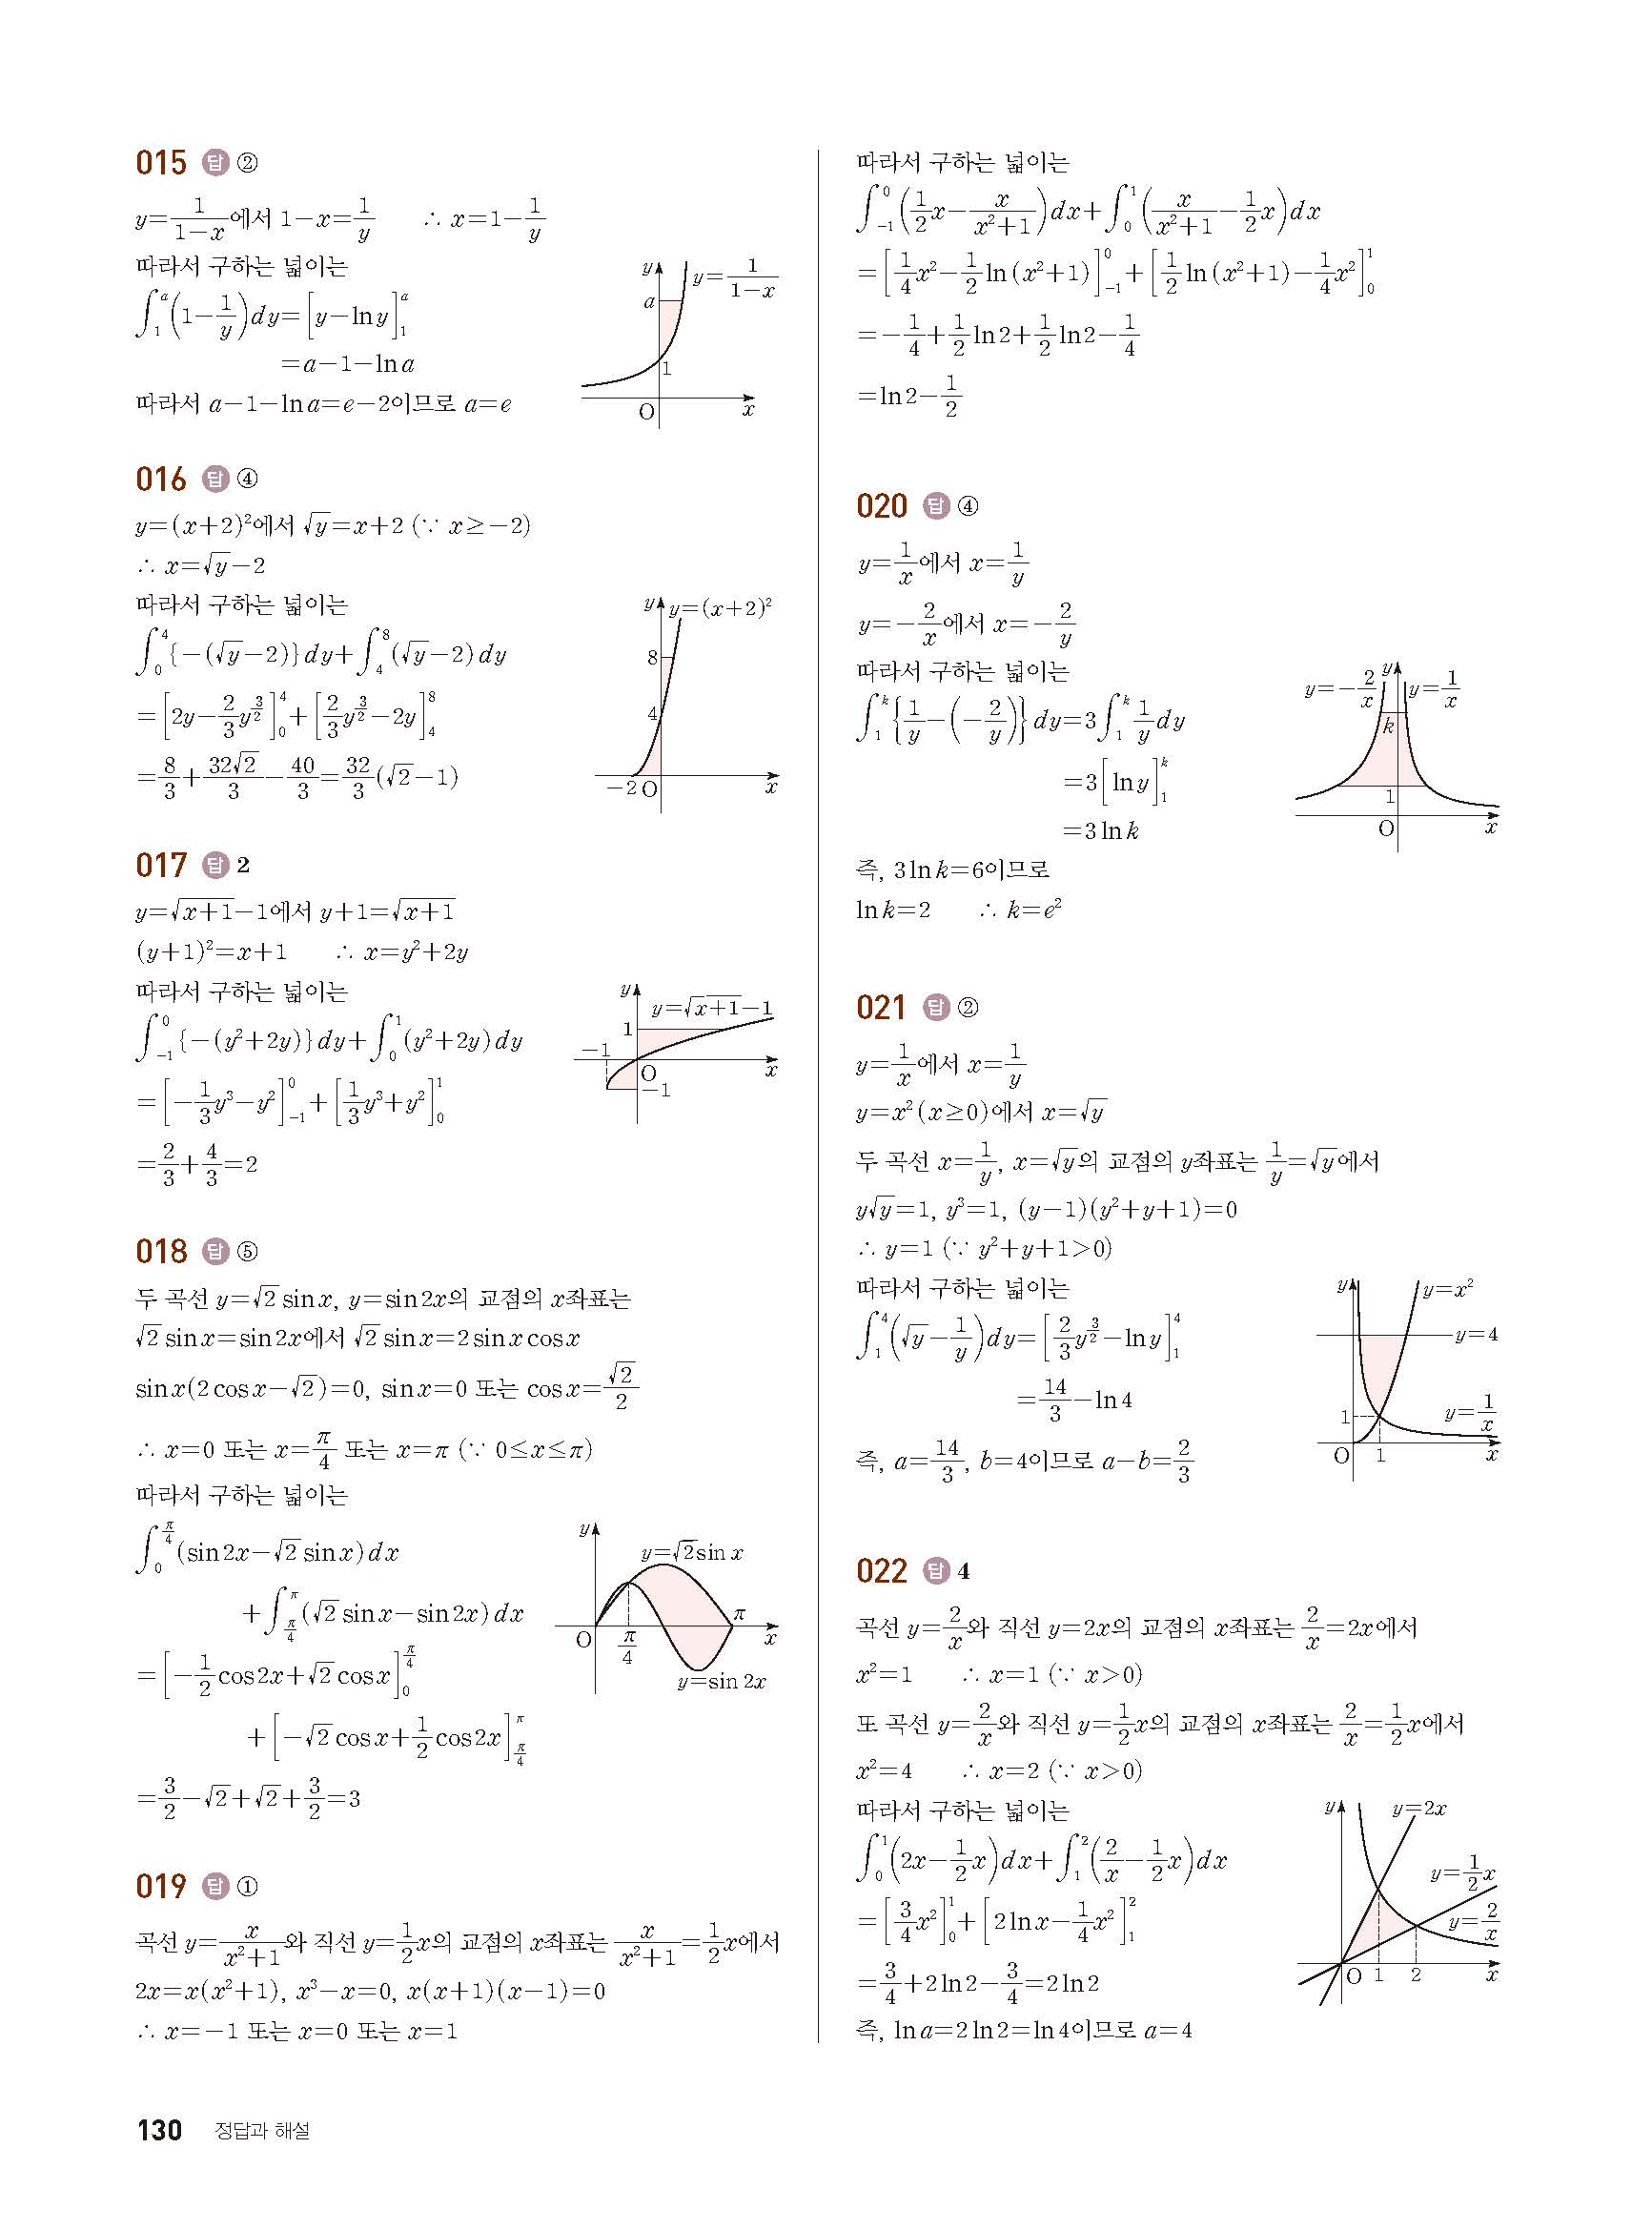 015 답 ②
y=1/(1-x)에서 1-x=1/y ∴ x=1-1/y
따라서 구하는 넓이는
∫₁ᵃ(1-1/y)dy=[y-ln y]₁ᵃ
=a-1-ln a
따라서 a-1-ln a=e-2이므로 a=e
y
a
y=1/(1-x)
1
O
x
016 답 ④
y=(x+2)²에서 √y=x+2 (∵ x≥-2)
∴ x=√y-2
따라서 구하는 넓이는
∫₀⁴{-(√y-2)}dy+∫₄⁸(√y-2)dy
=[2y-(2/3)y^(3/2)]₀⁴+[(2/3)y^(3/2)-2y]₄⁸
=8/3+32√2/3-40/3=32/3(√2-1)
y
y=(x+2)²
8
4
-2
O
x
017 답 2
y=√(x+1)-1에서 y+1=√(x+1)
(y+1)²=x+1 ∴ x=y²+2y
따라서 구하는 넓이는
∫₋₁⁰{-(y²+2y)}dy+∫₀¹(y²+2y)dy
=[-(1/3)y³-y²]₋₁⁰+[(1/3)y³+y²]₀¹
=2/3+4/3=2
y
y=√(x+1)-1
1
-1
O
x
-1
018 답 ⑤
두 곡선 y=√2 sin x, y=sin 2x의 교점의 x좌표는
√2 sin x=sin 2x에서 √2 sin x=2 sin x cos x
sin x(2 cos x-√2)=0, sin x=0 또는 cos x=√2/2
∴ x=0 또는 x=π/4 또는 x=π (∵ 0≤x≤π)
따라서 구하는 넓이는
∫₀^(π/4)(sin 2x-√2 sin x)dx
+∫_(π/4)^π(√2 sin x-sin 2x)dx
=[-(1/2)cos 2x+√2 cos x]₀^(π/4)
+[-√2 cos x+(1/2)cos 2x]_(π/4)^π
=3/2-√2+√2+3/2=3
y
y=√2 sin x
O
π/4
π
x
y=sin 2x
019 답 ①
곡선 y=x/(x²+1)와 직선 y=(1/2)x의 교점의 x좌표는 x/(x²+1)=(1/2)x에서
2x=x(x²+1), x³-x=0, x(x+1)(x-1)=0
∴ x=-1 또는 x=0 또는 x=1
따라서 구하는 넓이는
∫₋₁⁰((1/2)x-x/(x²+1))dx+∫₀¹(x/(x²+1)-(1/2)x)dx
=[(1/4)x²-(1/2)ln(x²+1)]₋₁⁰+[(1/2)ln(x²+1)-(1/4)x²]₀¹
=-1/4+(1/2)ln 2+(1/2)ln 2-1/4
=ln 2-1/2
020 답 ④
y=1/x에서 x=1/y
y=-2/x에서 x=-2/y
따라서 구하는 넓이는
∫₁ᵏ{1/y-(-2/y)}dy=3∫₁ᵏ(1/y)dy
=3[ln y]₁ᵏ
=3 ln k
즉, 3 ln k=6이므로
ln k=2 ∴ k=e²
y=-2/x
y
y=1/x
k
1
O
x
021 답 ②
y=1/x에서 x=1/y
y=x²(x≥0)에서 x=√y
두 곡선 x=1/y, x=√y의 교점의 y좌표는 1/y=√y에서
y√y=1, y³=1, (y-1)(y²+y+1)=0
∴ y=1 (∵ y²+y+1>0)
따라서 구하는 넓이는
∫₁⁴(√y-1/y)dy=[(2/3)y^(3/2)-ln y]₁⁴
=14/3-ln 4
즉, a=14/3, b=4이므로 a-b=2/3
y
y=x²
y=4
1
y=1/x
O
1
x
022 답 4
곡선 y=2/x와 직선 y=2x의 교점의 x좌표는 2/x=2x에서
x²=1 ∴ x=1 (∵ x>0)
또 곡선 y=2/x와 직선 y=(1/2)x의 교점의 x좌표는 2/x=(1/2)x에서
x²=4 ∴ x=2 (∵ x>0)
따라서 구하는 넓이는
∫₀¹(2x-(1/2)x)dx+∫₁²(2/x-(1/2)x)dx
=[(3/4)x²]₀¹+[2 ln x-(1/4)x²]₁²
=3/4+2 ln 2-3/4=2 ln 2
즉, ln a=2 ln 2=ln 4이므로 a=4
y
y=2x
y=(1/2)x
y=2/x
O
1
2
x
130 정답과 해설